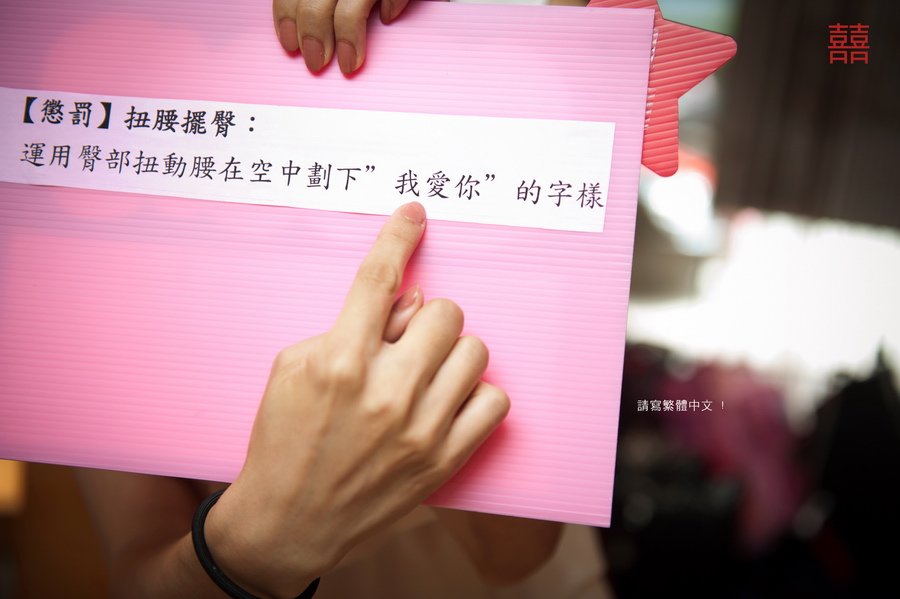 囍
【懲罰】扭腰擺臀：
運用臀部扭動腰在空中劃下”我愛你”的字樣
請寫繁體中文 ！